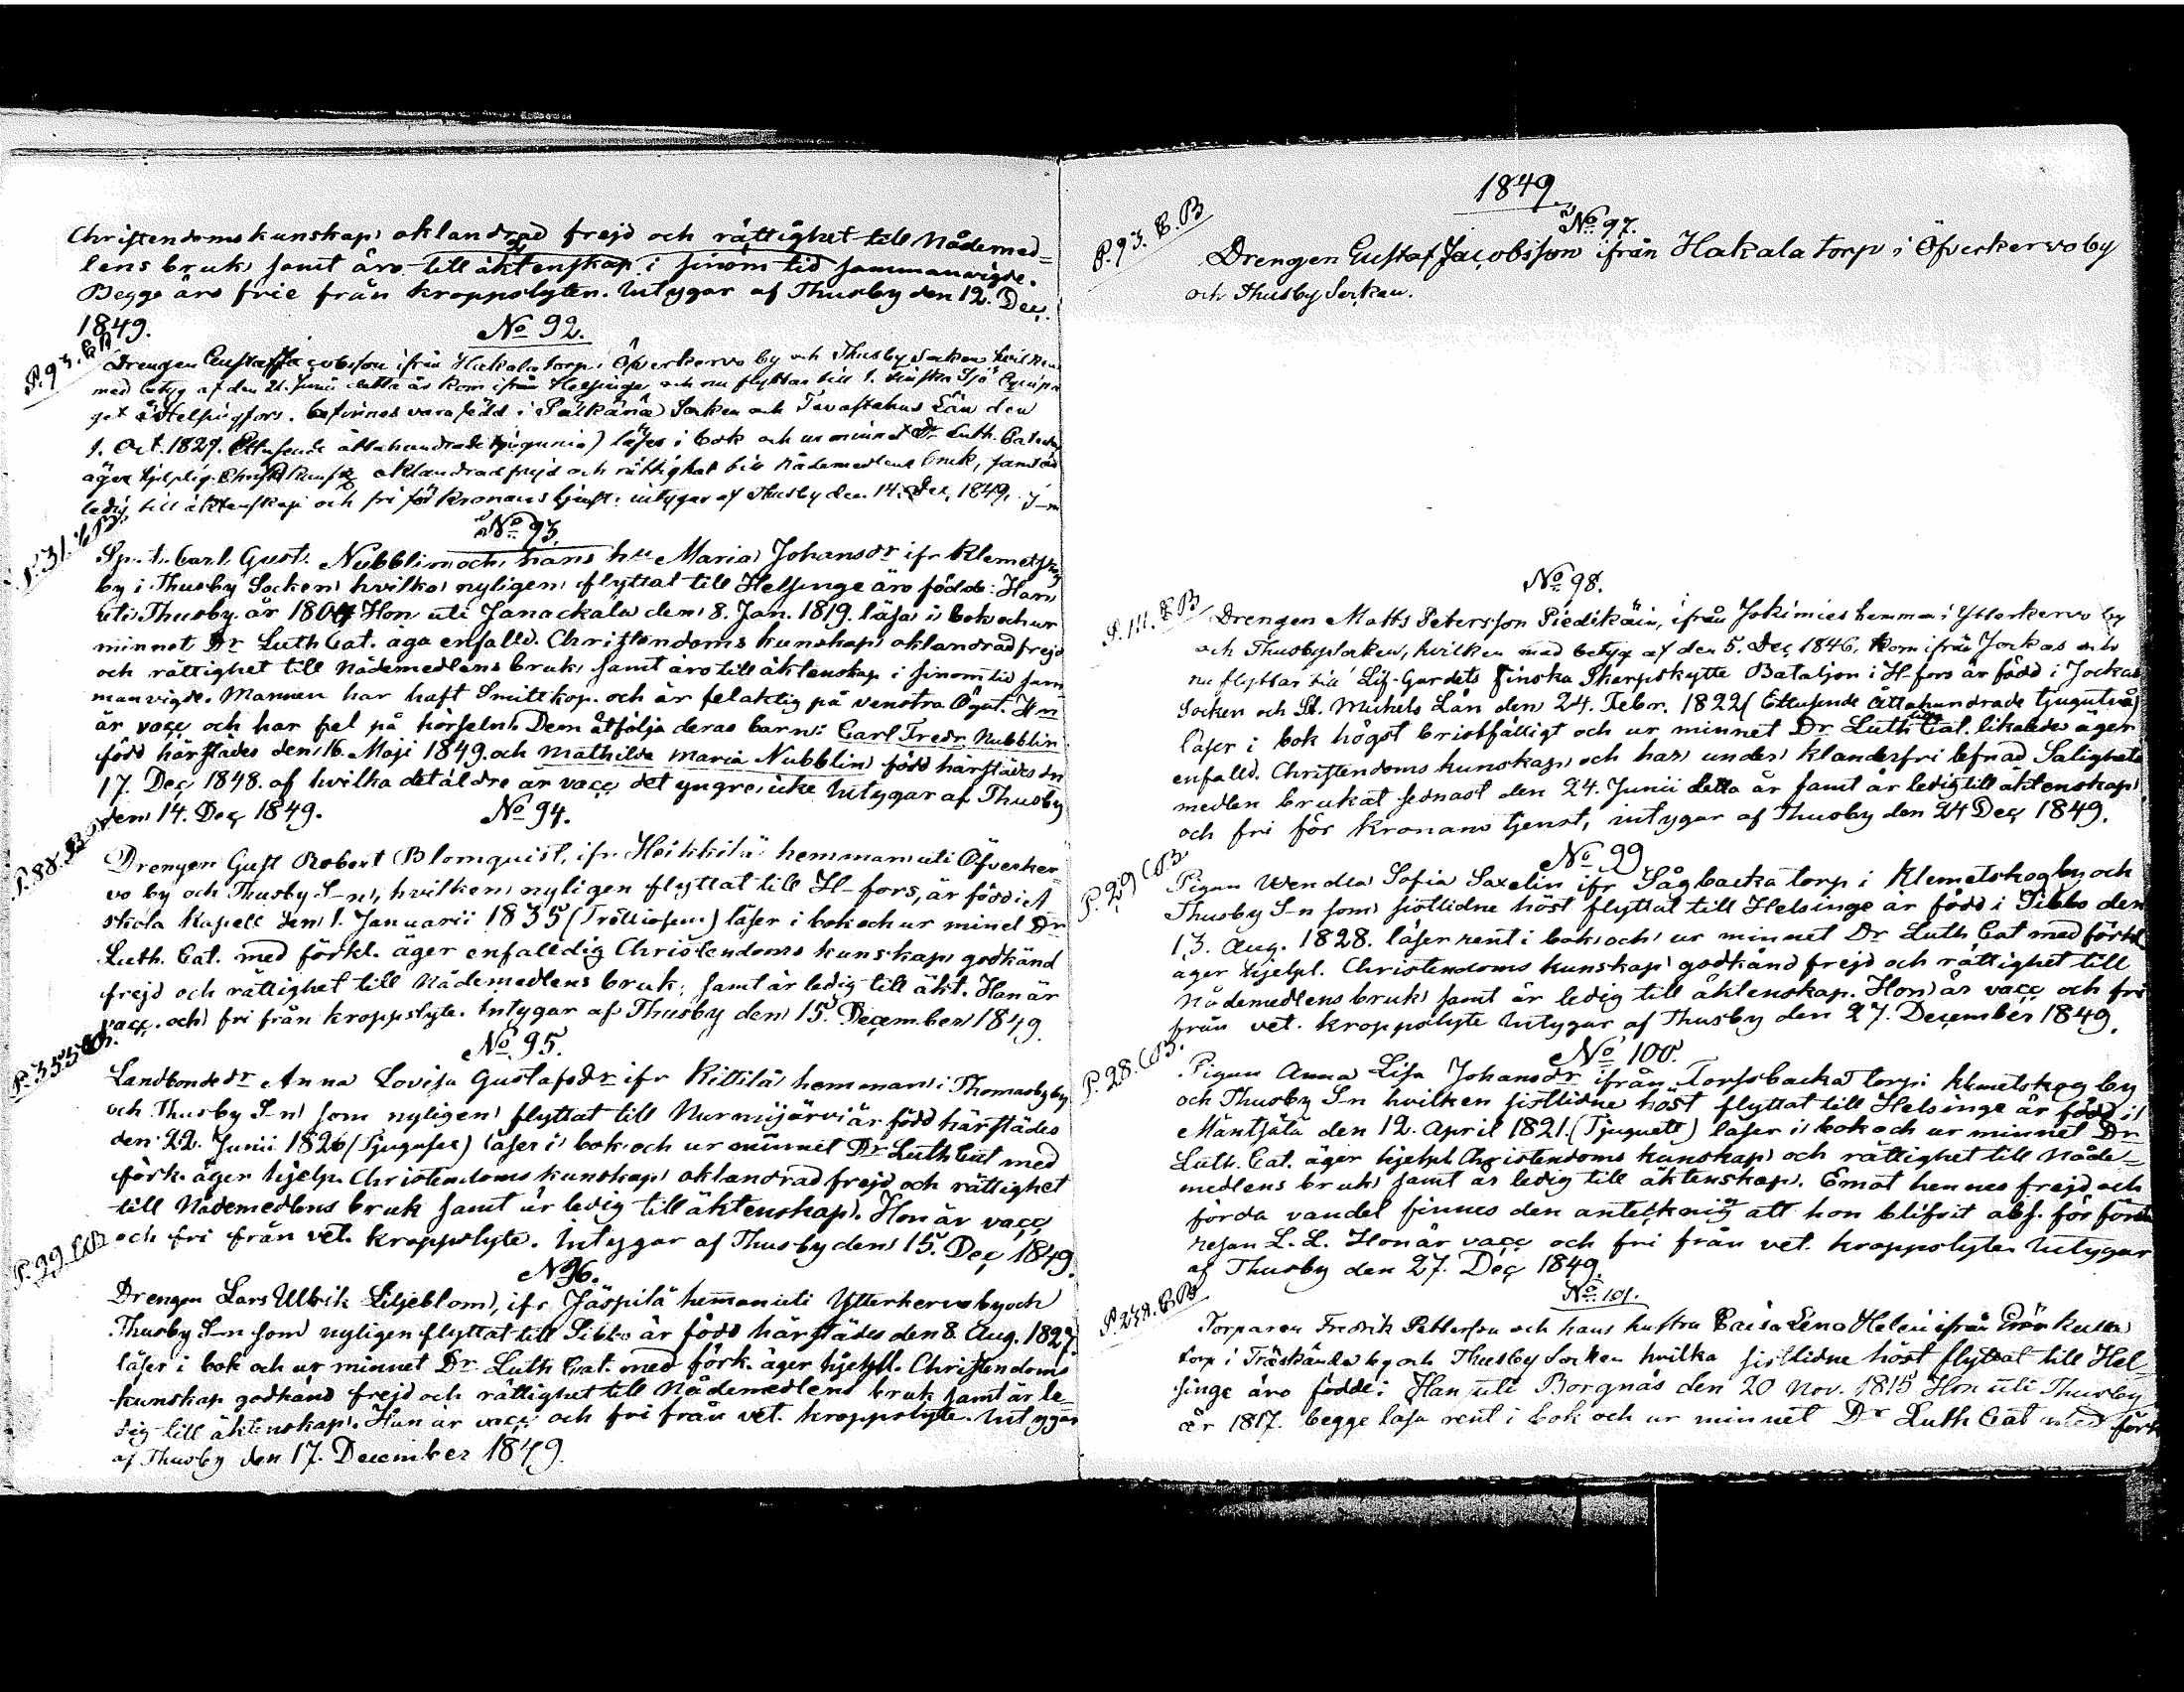 Christendomskunskap, oklandrad frejd och rättighet till Nådemed=
lens bruk, samt äro till äktenskap i sinom tid sammanvigde.
Begge äro frie från kroppslyten. Intygar af Thusby den 12. Dec.
1849.
No 92.
P. 93. B.B
Drengen Gustaf Jacobsson ifrån Hakala torp i Öfverkervo by och Thusby Socken hvilken
med betyg af den 21. Junii detta år kom ifrån Helsinge och nu flyttar till 1. finska Sjö Equipa
get i Helsingfors, befinnes vara född i Pälkäne Socken och Tavastehus Län den
1. Oct. 1829. läser i bok och ur minnet Dr Luth. Cateches
äger hjelplig oklandrad frejd och rättighet till Nådemedlens bruk, samt är
ledig till äktenskap och fri för Kronans tjenst, intygar af Thusby den 14. Dec. 1849.
No 93.
P. 31.
Sp. t. Carl Gust. Nubblin och hans hu Maria Johansdr ifr Klemetskog
by i Thusby Socken hvilka nyligen flyttat till Helsinge äro födde: Han
uti Thusby år 1804 Hon uti Janackala den 8. Jan. 1819. läsa i bok och ur
minnet Dr Luth Cat. äga enfalld. Christendoms kunskap, oklandrad frejd
och rättighet till Nådemedlens bruk, samt äro till äktenskap i sinom tid sam
manvigde. Mannen har haft Smittkop. och är felaktig på venstra Ögat. Hn
är vacc och har fel på hörseln. Dem åtfölja deras barn: Carl Fredr. Nubblin
född härstädes den 16. Maji 1849. och Mathilda Maria Nubblin född härstädes dn
17. Dec 1848. af hvilka det äldre är vacc det yngre icke Intygar af Thusby
den 14. Dec 1849.
No 94.
P. 88.
Drengen Gust Robert Blomquist, ifr Heikkilä hemman uti Öfverker=
vo by och Thusby S-n, hvilken nyligen flyttat till H-fors, är född i A
skola Kapell den 1. Januarii 1835 (Trettiofem) läser i bok och ur minet Dr
Luth. Cat. med förkl. äger enfalldig Christendoms kunskap, godkänd
frejd och rättighet till Nådemedlens bruk, samt är ledig till äkt. Han är
vacc. och fri från kroppslyte. Intygar af Thusby den 15. December 1849.
No 95.
P. 355
Landbondedr Anna Lovisa Gustafsdr ifr Kittilä hemman i Thomasby by
och Thusby S-n som nyligen flyttat till Nurmijärvi är född härstädes
den 22. Junii 1826 (Tjugusex) läser i bok och ur minnet Dr Luth Cat med
förk. äger hjelp. Christendoms kunskap, oklandrad frejd och rättighet
till Nådemedlens bruk samt är ledig till äktenskap. Hon är vacc
och fri från vet. kroppslyte. Intygar af Thusby den 15. Dec 1849.
No 96.
P. 29
Drengen Lars Ulrik Liljeblom, ifr Jäspilä hemman uti Ytterkervo by och
Thusby S-n som nyligen flyttat till Sibbo är född härstädes den 8. Aug. 1827
läser i bok och ur minnet Dr. Luth Cat. med förk. äger hjelpl. Christendoms
kunskap godkänd frejd och rättighet till Nådemedlens bruk samt är le=
dig till äktenskap. Han är vacc och fri från vet. kroppslyte. Intygar
af Thusby den 17. December 1849.
1849
No 97.
P. 93. B.B
Drengen Gustaf Jacobsson ifrån Hakala torp i Öfverkervo by
och Thusby Socken.
No 98.
P. 111. B.B
Drengen Matts Petersson Piedikäin, ifrån Jokimies hemman i Ytterkervo by
och Thusby socken, hvilken med betyg af den 5. Dec 1846, kom ifrån Jockas och
nu flyttar till Lif-Gardets Finska Skarpskytte Bataljon i H-fors är född i Jockas
Socken och St. Michels Län den 24. Febr. 1822 (Ettusende Åttahundrade tjugutvå)
läser i bok högst bristfälligt och ur minnet Dr. Luth Cat. likaledes äger
enfalld. Christendoms kunskap, och har under klanderfri lefnad Salighets
medlen brukat sednast den 24. Junii detta år samt är ledig till äktenskap
och fri för Kronans tjenst, intygar af Thusby den 24 Dec 1849.
No 99
P. 29
Pigan Wendla Sofia Saxelin ifr Sågbacka torp i Klemetskog by och
Thusby S-n som sistlidne höst flyttat till Helsinge är född i Sibbo den
13. Aug. 1828. läser rent i bok och ur minnet Dr Luth Cat med förkl
äger hjelpl. Christendoms kunskap, godkänd frejd och rättighet till
Nådemedlens bruk samt är ledig till äktenskap. Hon är vacc och fri
från vet. kroppslyte Intygar af Thusby den 27. December 1849.
No 100.
P. 28.
Pigan Anna Lisa Johansdr ifrån Torpsbacka torp i Klemetskog by
och Thusby S-n hvilken sistlidne höst flyttat till Helsinge är född i
Mäntsälä den 12. April 1821. (Tjuguett) läser i bok och ur minnet Dr
Luth. Cat. äger hjelpl. Christendoms kunskap, och rättighet till Nåde=
medlens bruk, samt är ledig till äktenskap. Emot hennes frejd och
förda vandel finnes den anteckning att hon blifvit abs. för första
resan L. L. Hon är vacc och fri från vet. kroppslyte Intygar
af Thusby den 27. Dec 1849.
No 101.
Torparen Fredrik Pettersson och hans hustru Caisa Lena Helin ifrån
torp i Träskända by och Thusby Socken hvilka sistlidne höst flyttat till Hel=
singe äro födde: Han uti Borgnäs den 20 Nov. 1815 Hon uti Thusby
år 1817. begge läsa rent i bok och ur minnet Dr Luth Cat med förk